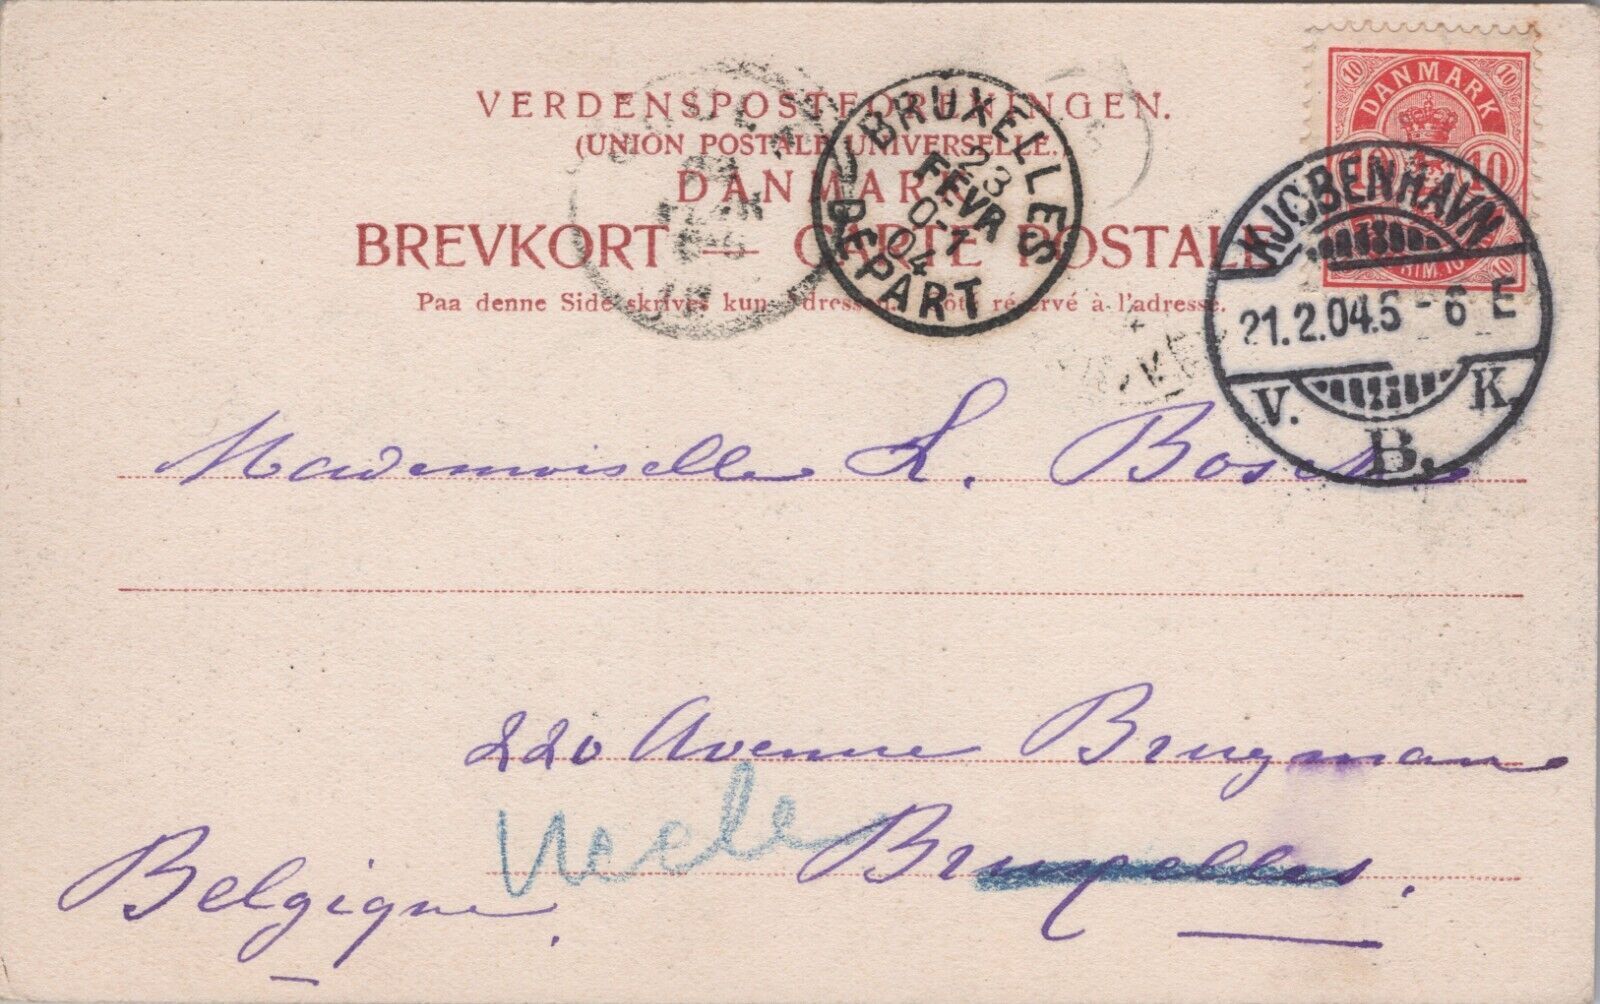 VERDENSPOSTFORENINGEN.
(UNION POSTALE UNIVERSELLE.)
DANMARK
BREVKORT — CARTE POSTALE
Paa denne Side skrives kun Adressen. Côté réservé à l'adresse.
DANMARK
10 10
10 10
10
BRUXELLES
23
FEVR
0-1
04
DEPART
KJØBENHAVN
21.2.04.5-6 E
V. K.
B.
Mademoiselle L. Bosch
220 Avenue Brugman
Uccle Bruxelles.
Belgique.